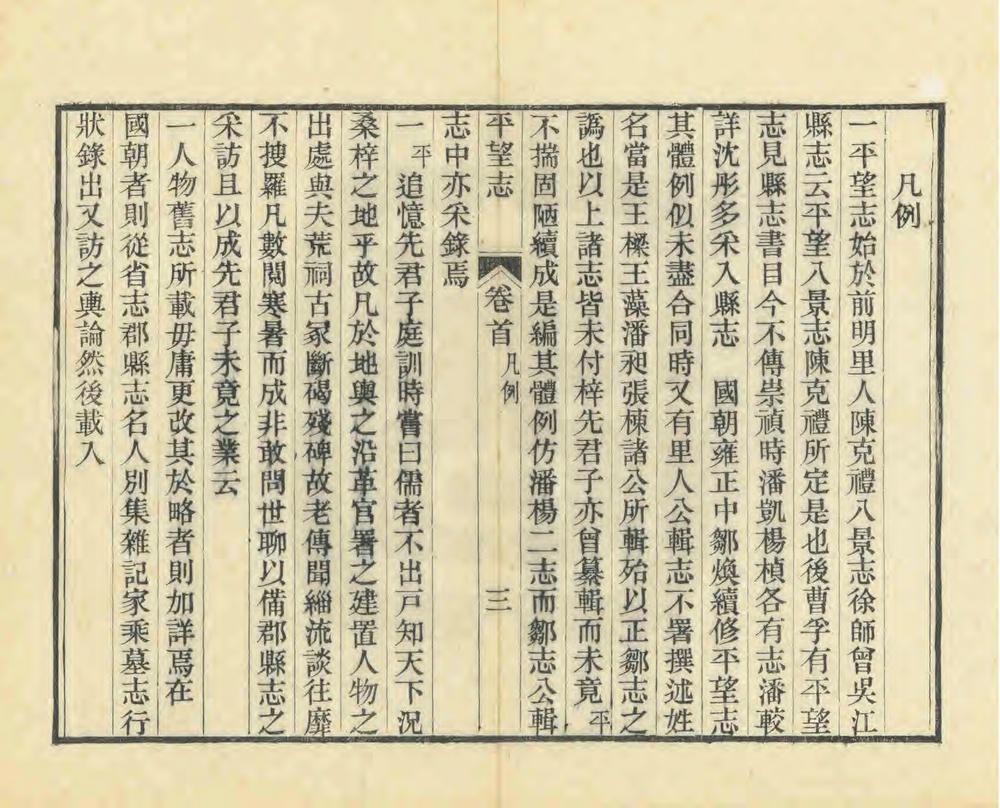 凡例
一平望志始於前明里人陳克禮八景志徐師曾吳江
縣志云平望八景志陳克禮所定是也後曹孚有平望
志見縣志書目今不傳崇禎時潘凱楊楨各有志潘較
詳沈彤多采入縣志　國朝雍正中鄒煥續修平望志
其體例似未盡合同時又有里人公輯志不署撰述姓
名當是王樑王藻潘昶張棟諸公所輯殆以正鄒志之
譌也以上諸志皆未付梓先君子亦曾纂輯而未竟平
不揣固陋續成是編其體例仿潘楊二志而鄒志公輯
平望志　卷首　凡例　三
志中亦采錄焉
一平追憶先君子庭訓時嘗曰儒者不出戸知天下況
桑梓之地乎故凡於地輿之沿革官署之建置人物之
出處與夫荒祠古冢斷碣殘碑故老傳聞緇流談往靡
不搜羅凡數閱寒暑而成非敢問世聊以備郡縣志之
采訪且以成先君子未竟之業云
一人物舊志所載毋庸更改其於略者則加詳焉在
國朝者則從省志郡縣志名人別集雜記家乘墓志行
狀錄出又訪之輿論然後載入